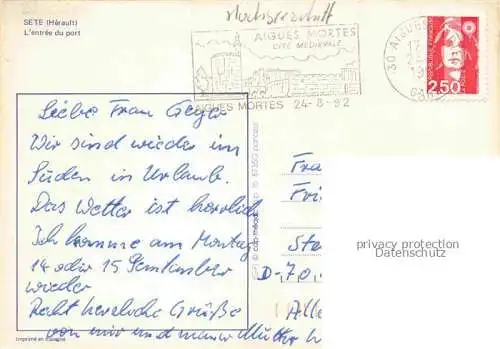 SETE (Hérault)
L'entrée du port
AIGUES MORTES
CITÉ MEDIEVALE
AIGUES MORTES 24-8-92
30 AIGUES
17
GARD
REPUBLIQUE FRANÇAISE
2,50
LA POSTE
Liebe Frau
Wir sind wieder im
Süden in Urlaub.
Das Wetter ist herrlich
Ich komme am Montag
14 oder 15 September
wieder
Recht herzliche Grüße
von mir und meiner Mutter
Fra
Fri
Ste
D-70
Alle
privacy protection
Datenschutz
Imprimé en